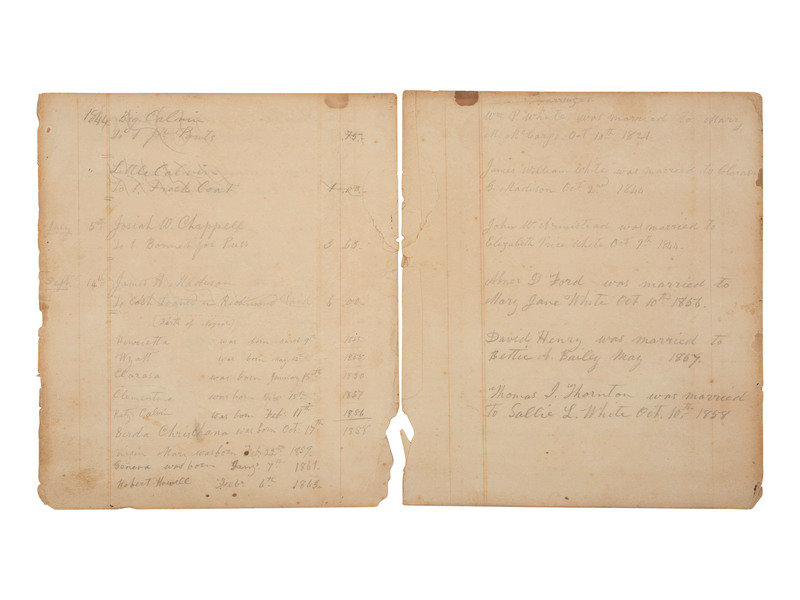 1844 Big Calvin
To 1 pr Boots 75
Little Calvin
To 1 Frock Coat
5th Josiah W. Chappell
To 1 Bonnet for 3 63
Sept 14th James H. Madison
To Cash Loaned in Richmond 5 00
(Birth of)
Henrietta was born
Wyatt was born
Clarasa was born January 15th 1850
Clementina was born 15th 1851
Calvin was born Feb. 11th 1856
Christiana was born Oct. 17th 1858
Mary was born 22nd 1859
Genora was born Jany 7th 1861
Robert Howell Feb 6th 1863
Marriages
Wm P White was married to Mary
M. Oct 10th 1821
James William White was married to Clarasa
E. Madison Oct 2nd 1844
John W. Armistead was married to
Elizabeth Price White Oct 9th 1844
Abner D Ford was married to
Mary Jane White Oct 10th 1856.
David Henry was married to
Bettie A. Bailey May 1857.
Thomas J. Thornton was married
to Sallie L. White Oct. 10th 1858